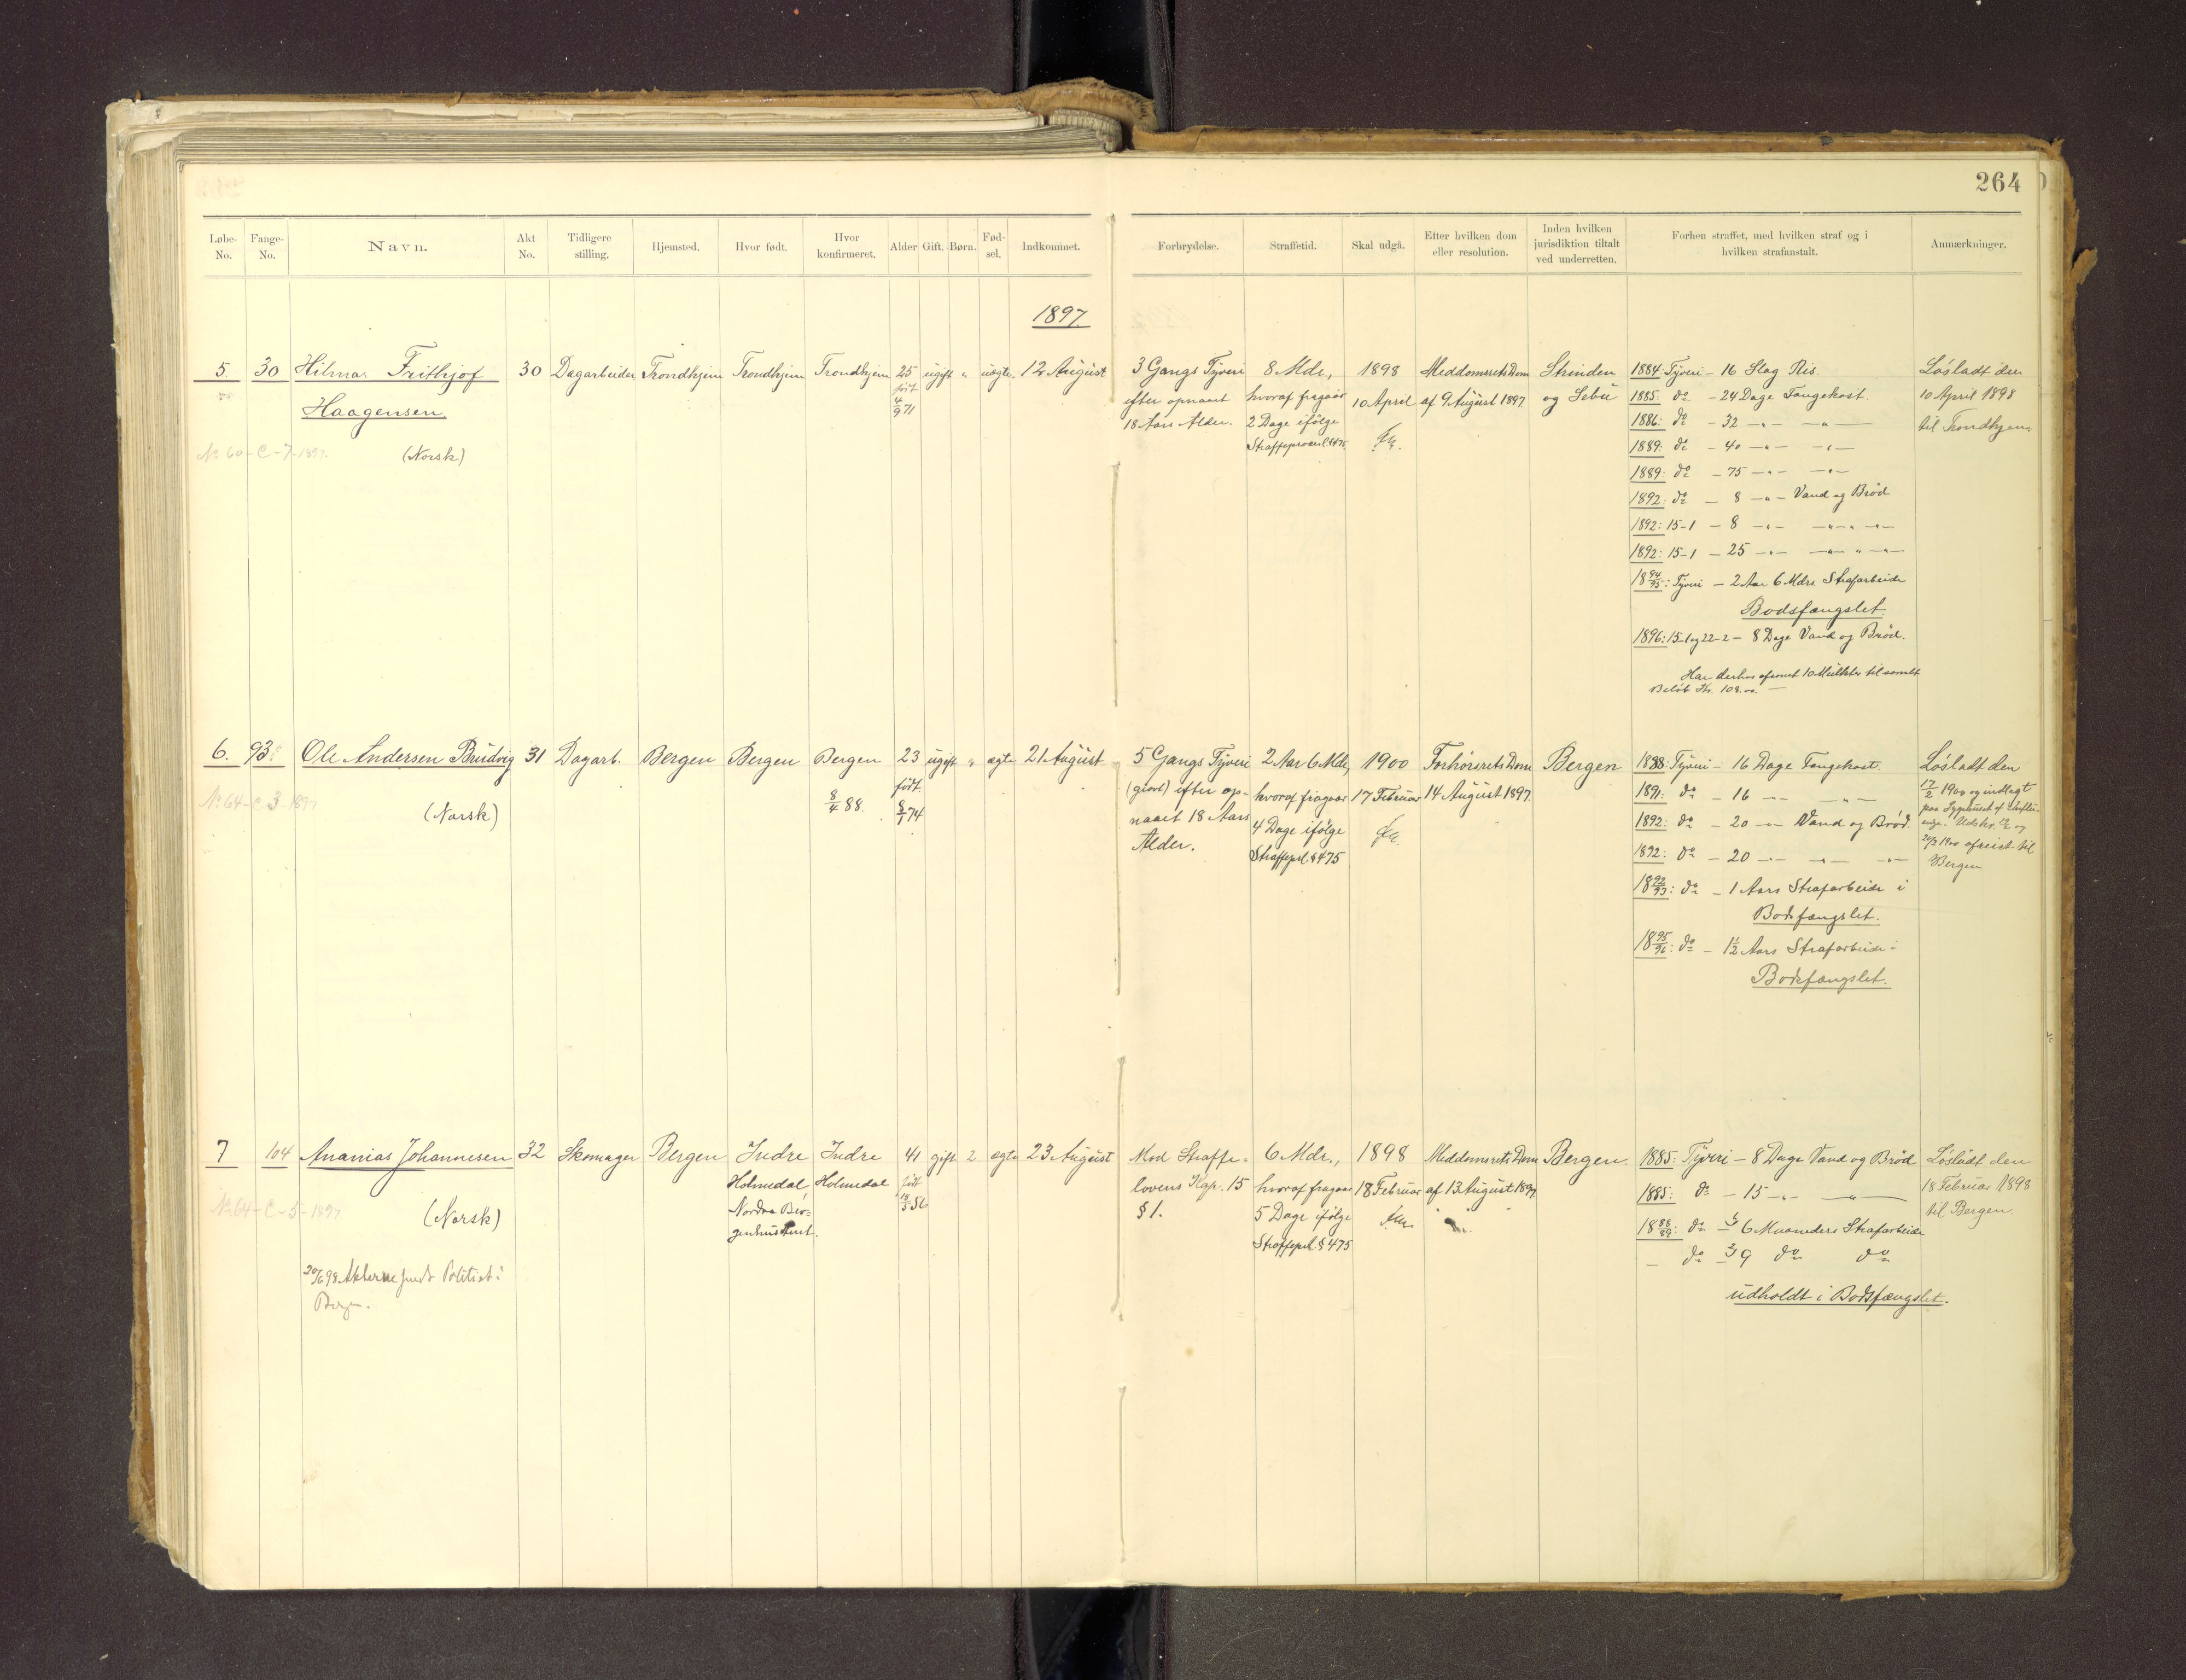 264
Løbe-No.
Fange-No.
Navn.
Akt No.
Tidligere stilling.
Hjemsted.
Hvor født.
Hvor konfirmeret.
Alder
Gift.
Børn.
Fød-sel.
Indkommet.
Forbrydelse.
Straffetid.
Skal udgå.
Efter hvilken dom eller resolution.
Inden hvilken jurisdiktion tiltalt ved underretten.
Forhen straffet, med hvilken straf og i hvilken strafanstalt.
Anmærkninger.
1897
5. 30 Hilmar Frithjof 30 Dagarbeider Trondhjem Trondhjem Trondhjem 25 ugift " uægte. 12 August
Haagensen
født 4/9 71
No 60-C-7-1897.
(Norsk)
3 Gangs Tyveri
efter opnaaet
18 Aars Alder.
8 Mdr.,
hvoraf fragaar
2 Dage ifølge
Straffeprocesl. § 475
1898
10 April
Meddomsrets Dom
af 9 August 1897
Strinden
og Selbu
1884: Tyveri - 16 Slag Ris.
1885: do - 24 Dage Fangekost.
1886: do - 32 -"- -"-
1889: do - 40 -"- -"-
1889: do - 75 -"- -"-
1892: do - 8 -"- Vand og Brød
1892: 15-1 - 8 -"- -"- " -"-
1892: 15-1 - 25 -"- -"- " -"-
18 94/95: Tyveri - 2 Aar 6 Mdrs Strafarbeide
Bodsfængslet.
1896: 15-1 og 22-2 - 8 Dage Vand og Brød.
Har derhos afsonet 10 Mulkter til samlet
Beløb Kr. 108.00.
Løsladt den
10 April 1898
til Trondhjem
6. 93 Ole Andersen Brudvig 31 Dagarb. Bergen Bergen Bergen 23 ugift " ægte 21 August
8/4 88.
født
8/7 74
No 64-C-3-1897
(Norsk)
5 Gangs Tyveri
(grovt) efter op-
naaet 18 Aars
Alder.
2 Aar 6 Mdr.,
hvoraf fragaar
4 Dage ifølge
Straffeprl § 475
1900
17 Februar
Forhørsrets Dom
14 August 1897.
Bergen
1888: Tyveri - 16 Dage Fangekost.
1891: do - 16 -"- -"-
1892: do - 20 -"- Vand og Brød.
1892: do - 20 -"- -"- -"-
18 92/93: do - 1 Aars Strafarbeide i
Bodsfængslet.
18 95/96: do - 1½ Aars Strafarbeide i
Bodsfængslet.
Løsladt den
17/2 1900 og indlagt
paa Sygehuset
1900 afreist til
Bergen
7 104 Ananias Johannesen 32 Skomager Bergen Indre Indre 41 gift 2 ægte 23 August
Holmedal, Holmedal
Nordre Ber-
genhus Amt.
født
18/5 56
No 64-C-5-1897
(Norsk)
20/6 98 Akterne sendt Politiet i
Bergen.
Mod Straffe-
lovens Kap. 15
§ 1.
6 Mdr.,
hvoraf fragaar
5 Dage ifølge
Straffeprl § 475
1898
18 Februar
Meddomsrets Dom
af 13 August 1897.
Bergen.
1885: Tyveri - 8 Dage Vand og Brød
1885: do - 15 -"- -"-
18 88/89: do - 6 Maaneders Strafarbeide
- do 9 do do
udholdt i Bodsfængslet.
Løsladt den
18 Februar 1898
til Bergen